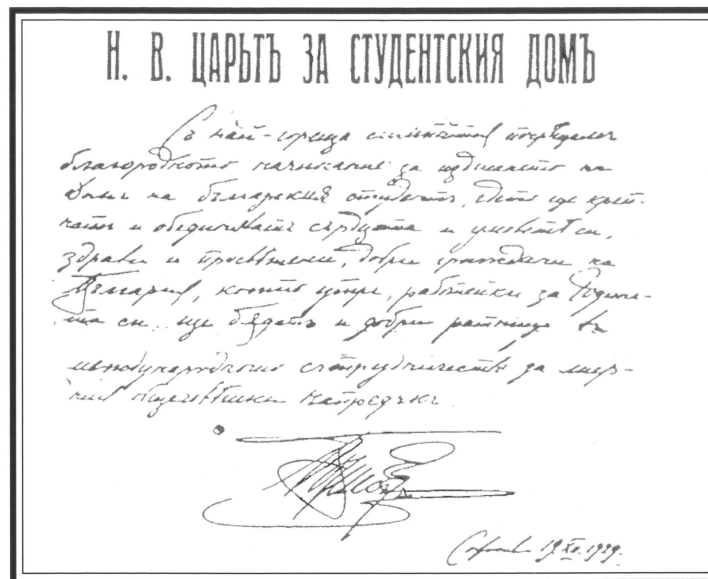 Н. В. ЦАРЬТЪ ЗА СТУДЕНТСКИЯ ДОМЪ
Съ най-гореща симпатия
благородното начинание за издигането на
Домъ на българския студентъ, дето ще креп-
натъ и обединяватъ сърдцата и умоветѣ си,
здрави и просвѣтени, добри граждани на
България, които утре, работейки за Родина-
та си, ще бѫдатъ и добри ратници въ
международното сътрудничество за мир-
ния общочовѣшки напредъкъ.
София 19.XI.1939.